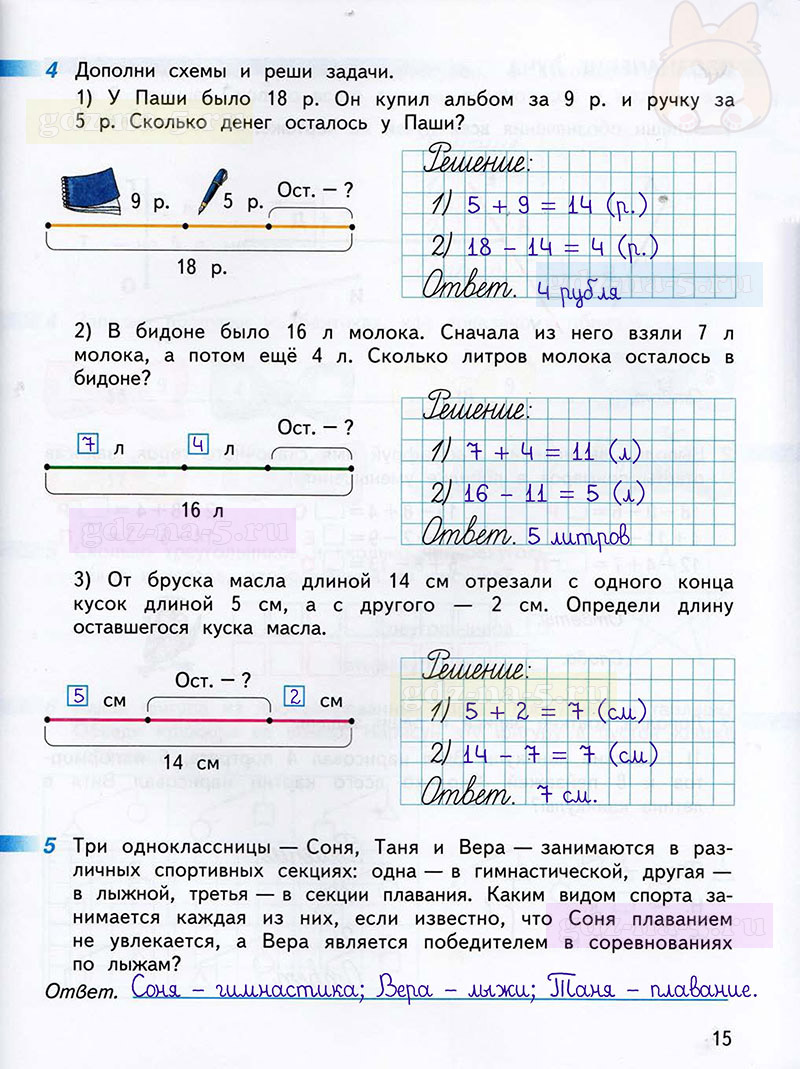 4 Дополни схемы и реши задачи.
1) У Паши было 18 р. Он купил альбом за 9 р. и ручку за
5 р. Сколько денег осталось у Паши?
gdz-na-5.ru
9 р. 5 р. Ост. – ?
18 р.
Решение:
1) 5 + 9 = 14 (р.)
2) 18 – 14 = 4 (р.)
Ответ. 4 рубля
gdz-na-5.ru
2) В бидоне было 16 л молока. Сначала из него взяли 7 л
молока, а потом ещё 4 л. Сколько литров молока осталось в
бидоне?
7 л 4 л Ост. – ?
16 л
gdz-na-5.ru
Решение:
1) 7 + 4 = 11 (л)
2) 16 – 11 = 5 (л)
Ответ. 5 литров
3) От бруска масла длиной 14 см отрезали с одного конца
кусок длиной 5 см, а с другого — 2 см. Определи длину
оставшегося куска масла.
5 см Ост. – ? 2 см
14 см
Решение:
gdz-na-5.ru
1) 5 + 2 = 7 (см)
2) 14 – 7 = 7 (см)
Ответ. 7 см.
5 Три одноклассницы — Соня, Таня и Вера — занимаются в раз-
личных спортивных секциях: одна — в гимнастической, другая —
в лыжной, третья — в секции плавания. Каким видом спорта за-
нимается каждая из них, если известно, что Соня плаванием
не увлекается, а Вера является победителем в соревнованиях
по лыжам?
gdz-na-5.ru
Ответ. Соня – гимнастика; Вера – лыжи; Таня – плавание.
15